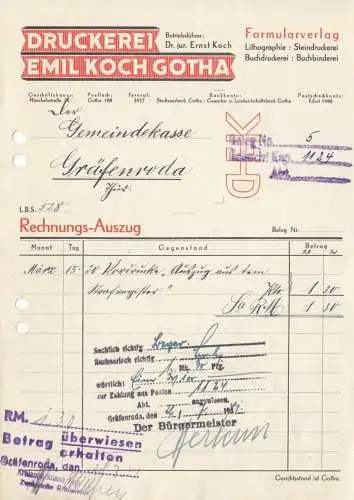 DRUCKEREI
EMIL KOCH GOTHA
Betriebsführer:
Dr. jur. Ernst Koch
Formularverlag
Lithographie : Steindruckerei
Buchdruckerei : Buchbinderei
Geschäftshaus:
Postfach:
Gotha 108
Fernruf:
2427
Bankkonto:
Städtebank Gotha : Gewerbe- u. Landwirtschaftsbank Gotha
Postscheckkonto:
Erfurt
Der
Gemeindekasse
Gräfenroda
Thür.
Beleg No. 5
1124
Abt.
L.B.S. 528
Rechnungs-Auszug
Beleg Nr.
Monat Tag Gegenstand Betrag
März 15. 20 Vordrucke „Auszug aus dem
Strafregister" 1 50
1 50
Sachlich richtig
Rechnerisch richtig
Mk. Pfg
wörtlich:
zur Zahlung aus Posten 1124
Abt. angewiesen.
Gräfenroda, den
Der Bürgermeister
RM.
Betrag überwiesen
erhalten
Gräfenroda, den
Gerichtsstand ist Gotha.